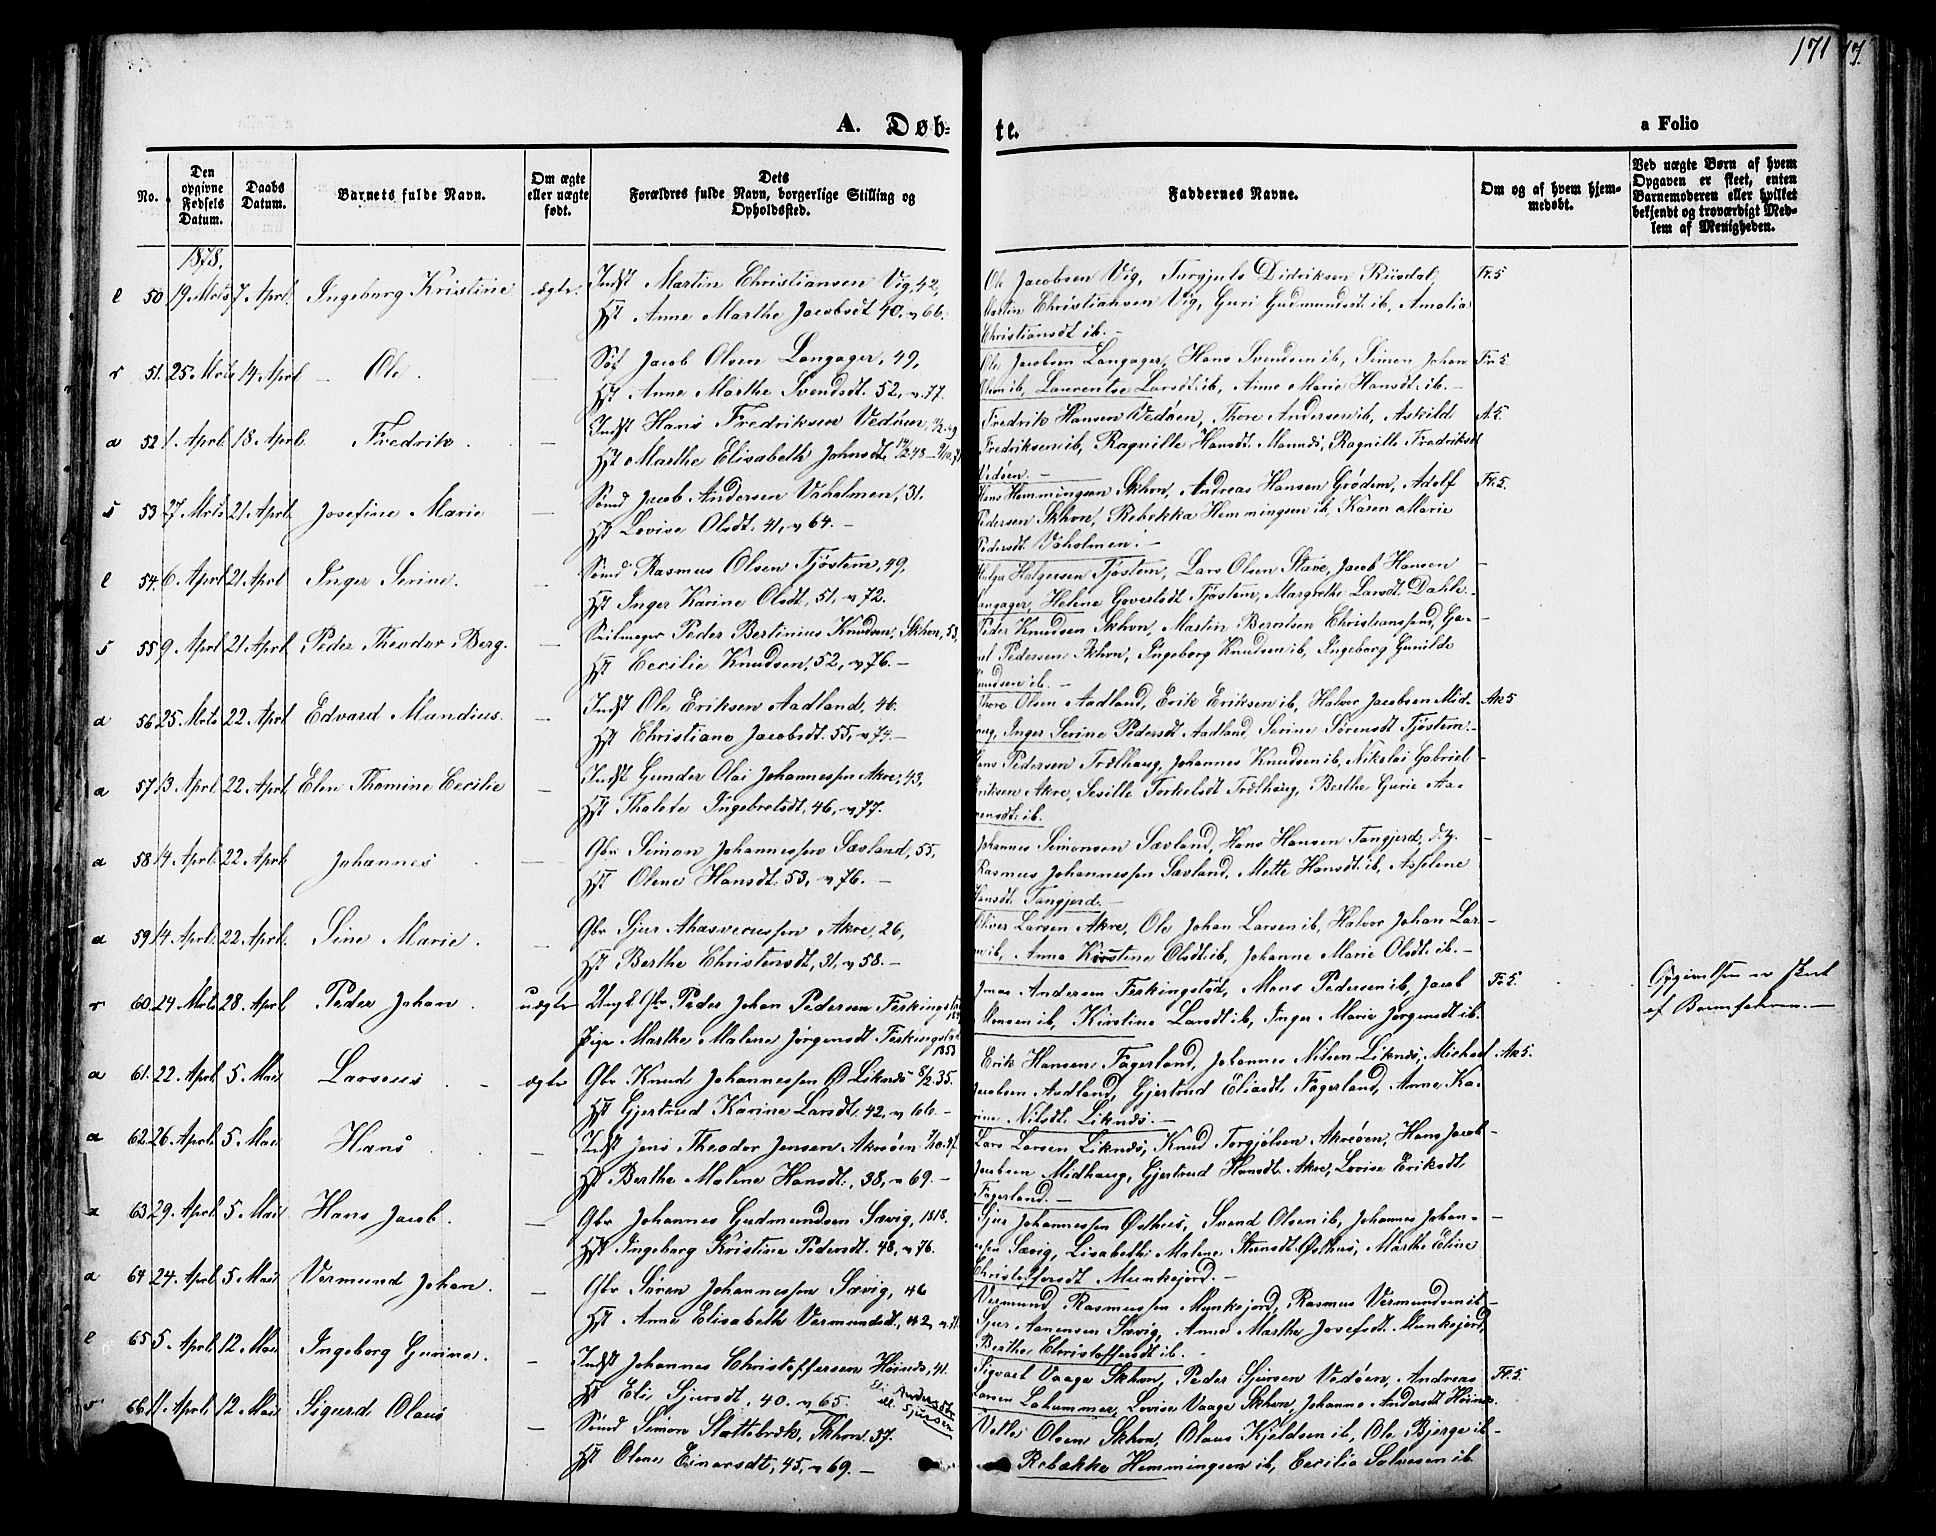 171 17.
A. Døb-
te.
a Folio
No.
Den opgivne Fødsels Datum.
Daabs Datum.
Barnets fulde Navn.
Om ægte eller uægte født.
Dets Forældres fulde Navn, borgerlige Stilling og Opholdssted.
Faddernes Navne.
Om og af hvem hjemmedøbt.
Ved uægte Børn af hvem Opgaven er skeet, enten Barnemoderen eller hvilket bekjendt og troværdigt Medlem af Menigheden.
1878.
e 50 19 Mrts 7 Aprl. Ingeborg Kristine ægte. Indst Martin Christiansen Vig, 42,
Hst Anne Marthe Jacobsdt 40. n 66.
Ole Jacobsen Vig, Torgjuls Didriksen Riisdal, Fr. 5
Martin Christiansen Vig, Guri Gudmundsdt ib, Amalia
Christiansdt ib. –
r 51. 25 Mrts 14 Aprl Ole. — Jacob Olsen Langager, 49,
Hst Anne Marthe Svendsdt. 52, n 77.
Ole Jacobsen Langager, Hans Svendsen ib, Simon Johan Fr. 5
Olsen ib, Laurentse Larsdt ib, Anne Marie Hansdt. ib. –
a 52 1. Aprl 18 Aprl. Fredrik. — Indst Hans Fredriksen Vedøen,
Hst Marthe Elisabeth Johnsdt.
Fredrik Hansen Vedøen, Thore Andersen ib, Askild A. 5.
Fredriksen ib, Ragnille Hansdt. Mannds, Ragnille Fredriksdt
Vedøen. –
s 53 27 Mrts 21 Aprl. Josefine Marie — Sømd Jacob Andersen Vaholmen, 31.
Hst Lovise Olsdt. 41, n 64. –
Hans Hemmingsen Skhvn, Andreas Hansen Grødem, Adolf Fr. 5.
Pedersen Skhvn, Rebekka Hemmingsen ib, Karen Marie
Pedersdt. Vaholmen. –
e 54. 6 Aprl 21 Aprl Inger Serine. — Sømd Rasmus Olsen Tjøstem, 49,
Hst Inger Karine Olsdt, 51, n 72.
Helge Holgersen Tjøstem, Lars Olsen Stave, Jacob Hansen –
Langager, Helene Govertsdt Tjøstem, Margrethe Larsdt. Dahle. –
s 55 9 Aprl 21 Aprl Peder Theodor Berg. — Seilmager Peder Bertinius Knudsen, Skhvn, 53,
Hst Cecilie Knudsen, 52, n 76. –
Peder Knudsen Skhvn, Martin Berntsen Christianssund, Ga- –
Pedersen Skhvn, Ingeborg Knudsen ib, Ingeborg Gunilde
Knudsen ib. –
a 56 25 Mrts 22 Aprl Edvard Mandius. — Indst Ole Eriksen Aadland, 46.
Hst Christiane Jacobsdt. 55, n 74. –
Thore Olsen Aadland, Erik Eriksen ib, Halvor Jacobsen Mid- Ak 5
haug, Inger Serine Pedersdt Aadland, Serine Sørensdt Tjøstem. –
a 57 13 Aprl 22 Aprl Elen Thomine Cecilie — Indst Gunder Olai Johannessen Akre, 43,
Hst Thalete Ingebretsdt, 46, n 77.
Hans Pedersen Trælhaug, Johannes Knudsen ib, Nikolai Gabriel –
Eriksen Akre, Seville Torkelsdt Trælhaug, Berthe Gurie Aa-
nensdt. ib.
a 58 14 Aprl. 22 Aprl. Johannes — Gbr Simon Johannessen Sævland, 55,
Hst Olene Hansdt. 53, n 76. –
Johannes Simonsen Sævland, Hans Hansen Tangjerd, d. y. –
Rasmus Johannessen Sævland, Mette Hansdt. ib, Asselene
Hansdt. Tangjerd. –
a 59 14 Aprl. 22 Aprl. Sine Marie. — Gbr Sjur Ahasverussen Akre, 26,
Hst Berthe Christensdt, 31, n 58. –
Oliver Larsen Akre, Ole Johan Larsen ib, Halvor Johan Lar- –
sen ib, Anne Kirstine Olsdt. ib, Johanne Marie Olsdt. ib. –
r 60 24 Mrts 28 Aprl Peder Johan. uægte Ungk. Gbr. Peder Johan Pedersen Ferkingstad
Pige Marthe Malene Jørgensdt Ferkingstad 1853
Jonas Andersen Ferkingstad, Mons Pedersen ib, Jacob Fr. 5. Opgivelsen er skeet
Monsen ib, Kirstine Larsdt ib, Inger Marie Jørgensdt ib. af Barnefaderen. –
a 61. 22 Aprl. 5 Mai Larseus. – ægte Gbr Knud Johannessen Ø Liknes 8/2 35.
Hst Gjertrud Karine Larsdt, 42, n 66. –
Erik Hansen Fagerland, Johannes Nilsen Liknes, Michael Ak 5.
Jacobsen Aadland, Gjertrud Eliasdt. Fagerland, Anne Ka-
rine Nilsdt. Liknes. –
a 62. 26 Aprl. 5 Mai Hans. — Indst Jens Theodor Jensen Akreøen
Hst Berthe Malene Hansdt., 38, n 69. –
Lars Larsen Liknes, Knud Torgjølsen Akreøen, Hans Jacob –
Jacobsen Midhaug, Gjertrud Hansdt. Akre, Lovise Eriksdt.
Fagerland. –
a 63 29. Aprl. 5 Mai Hans Jacob. — Gbr Johannes Gudmundsen Sævig, 1818.
Hst Ingeborg Kristine Pedersdt. 48, n 76.
Sjur Johannessen Østhus, Svend Olsen ib, Johannes Johan- –
nessen Sævig, Lisabeth Malene Steensdt. Østhus, Marthe Eline
Christoffersdt Munkejord. –
a 64 24. Aprl. 5 Mai Vermund Johan. — Gbr Søren Johannessen Sævig, 46
Hst Anne Elisabeth Vermundsdt, 42, n 71.
Vermund Rasmussen Munkejord, Rasmus Vermundsen ib –
Sjur Aanensen Sævig, Anne Marthe Josefsdt. Munkejord,
Berthe Christoffersdt ib. –
e 65 5. Aprl. 12. Mai Ingeborg Gurine. — Indst Johannes Christoffersen Høinæs, 41.
Hst Eli Sjursdt, 40. n 65. Eli Andersdtr. el. Sjursen
Sigvart Vaage Skhvn, Peder Sjursen Vedøen, Andreas Fr. 5.
Larsen Lahammer, Lovise Vaage Skhvn, Johanne Andersdt Høinæs.
s 66 11. Aprl. 12 Mai Sigurd Olaus — Sømd Simon Slettebræk, Skhvn, 37.
Hst Olene Einarsdt, 45, n 69. –
Vetle Olsen Skhvn, Olaus Kjeldsen ib, Ole Bjerge ib –
Rebække Hemmingsen ib, Cecilia Salvesen ib.